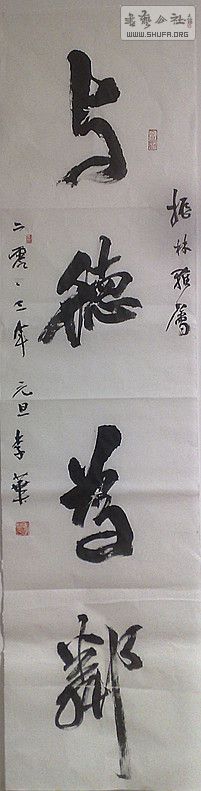 书艺公社
WWW.SHUFA.ORG
振林雅属
与德为邻
二零一二年 元旦 李華